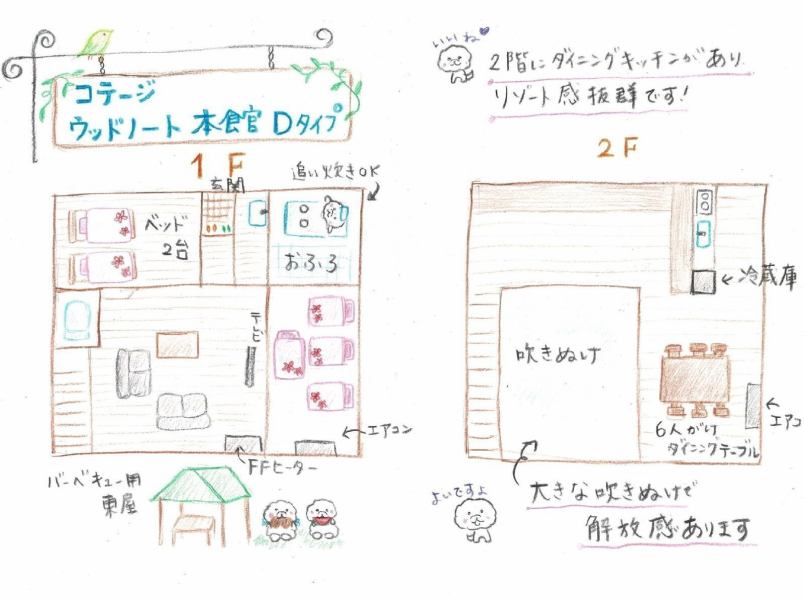 コテージ
ウッドノート 本館 Dタイプ
1F
玄関
追い炊きOK
ベッド
2台
おふろ
テレビ
エアコン
FFヒーター
バーベキュー用
東屋
いいね
2階にダイニングキッチンがあり
リゾート感抜群です!
2F
冷蔵庫
吹きぬけ
6人がけ
ダイニングテーブル
エアコ
よいですよ
大きな吹きぬけで
解放感あります